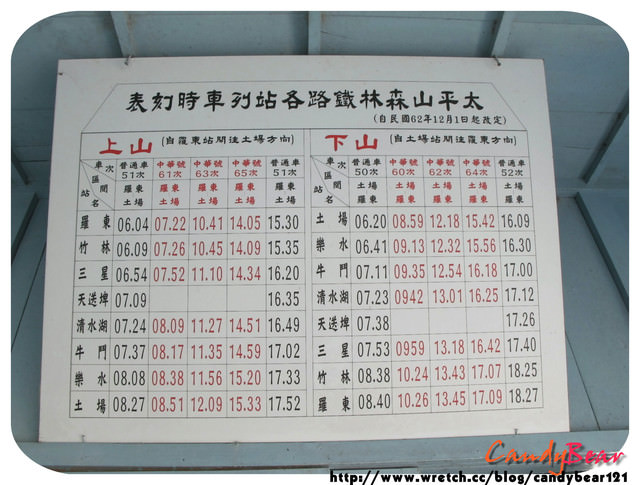 太平山森林鐵路各站列車時刻表
(自民國62年12月1日起改定)
上山 (自羅東站開往土場方向) 下山 (自土場站開往羅東方向)
車次 普通車 中華號 中華號 中華號 普通車 車次 普通車 中華號 中華號 中華號 普通車
51次 61次 63次 65次 51次 50次 60次 62次 64次 52次
區間 羅東 羅東 羅東 羅東 羅東 區間 羅東 羅東 羅東 羅東 羅東
站名 土場 土場 土場 土場 土場 站名 土場 土場 土場 土場 土場
羅東 06.04 07.22 10.41 14.05 15.30 土場 06.20 08.59 12.18 15.42 16.09
竹林 06.09 07.26 10.45 14.09 15.35 樂水 06.41 09.13 12.32 15.56 16.30
三星 06.54 07.52 11.10 14.34 16.20 牛鬥 07.11 09.35 12.54 16.18 17.00
天送埤 07.09 16.35 清水湖 07.23 0942 13.01 16.25 17.12
清水湖 07.24 08.09 11.27 14.51 16.49 天送埤 07.38 17.26
牛鬥 07.37 08.17 11.35 14.59 17.02 三星 07.53 0959 13.18 16.42 17.40
樂水 08.08 08.38 11.56 15.20 17.33 竹林 08.38 10.24 13.43 17.07 18.25
土場 08.27 08.51 12.09 15.33 17.52 羅東 08.40 10.26 13.45 17.09 18.27
CandyBear
http://www.wretch.cc/blog/candybear121